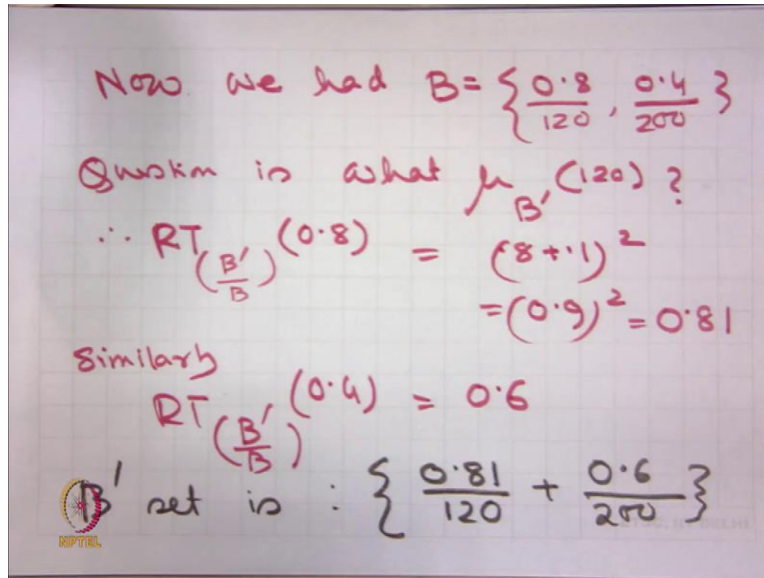 Now we had B = { 0.8/120 , 0.4/200 }
Question is what μ_B' (120) ?
∴ RT_(B'/B) (0.8) = (.8 + .1)^2
= (0.9)^2 = 0.81
Similarly
RT_(B'/B) (0.4) = 0.6
B' set is : { 0.81/120 + 0.6/200 }
NPTEL